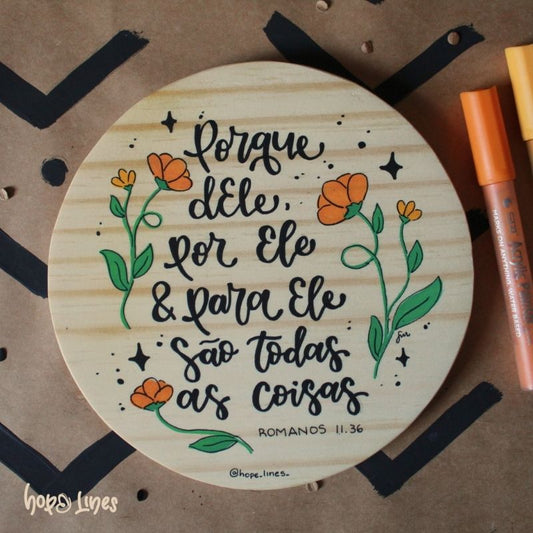 Porque
dEle,
por Ele
& para Ele
são todas
as coisas
ROMANOS 11.36
@hope_lines_
hope Lines